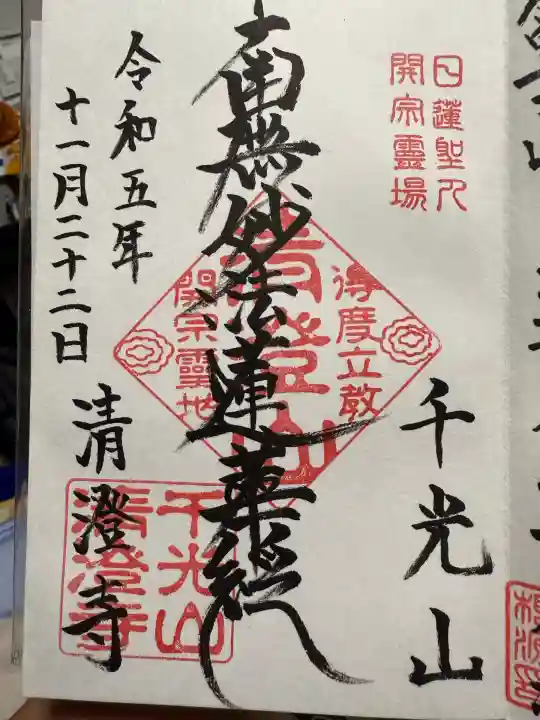 日蓮聖人
開宗靈場
千光山
南無妙法蓮華経
得度立教
清澄山
開宗霊地
令和五年
十一月二十二日
清澄寺
千光山
清澄寺